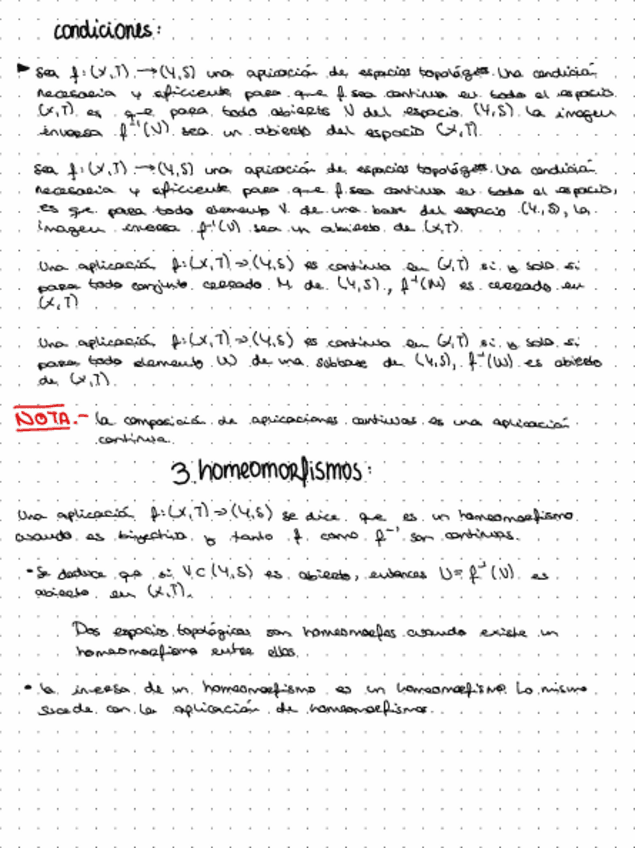 condiciones:
▶ Sea f:(X,T)→(Y,S) una aplicación de espacios topológ Una condición
necesaria y eficiente para que f sea continua en todo el espacio
(X,T) es que para todo abierto V del espacio (Y,S) la imagen
inversa f⁻¹(V) sea un abierto del espacio (X,T).
Sea f:(X,T)→(Y,S) una aplicación de espacios topológ Una condición
necesaria y eficiente para que f sea continua en todo el espacio,
es que para todo elemento V de una base del espacio (Y,S), la
imagen inversa f⁻¹(V) sea un abierto de (X,T).
Una aplicación f:(X,T)→(Y,S) es continua en (X,T) si y solo si
para todo conjunto cerrado M de (Y,S), f⁻¹(M) es cerrado en
(X,T)
Una aplicación f:(X,T)→(Y,S) es continua en (X,T) si y solo si
para todo elemento W de una subbase de (Y,S), f⁻¹(W) es abierto
de (X,T)
NOTA.- La composición de aplicaciones continuas es una aplicación
continua.
3. homeomorfismos:
Una aplicación f:(X,T)→(Y,S) se dice que es un homeomorfismo
cuando es biyectiva y tanto f como f⁻¹ son continuas.
• Se deduce que si V⊂(Y,S) es abierto, entonces U=f⁻¹(V) es
abierto en (X,T).
Dos espacio topológicos son homeomorfos cuando existe un
homeomorfismo entre ellos.
• La inversa de un homeomorfismo es un homeomorfismo. Lo mismo
sucede con la aplicación de homeomorfismos.